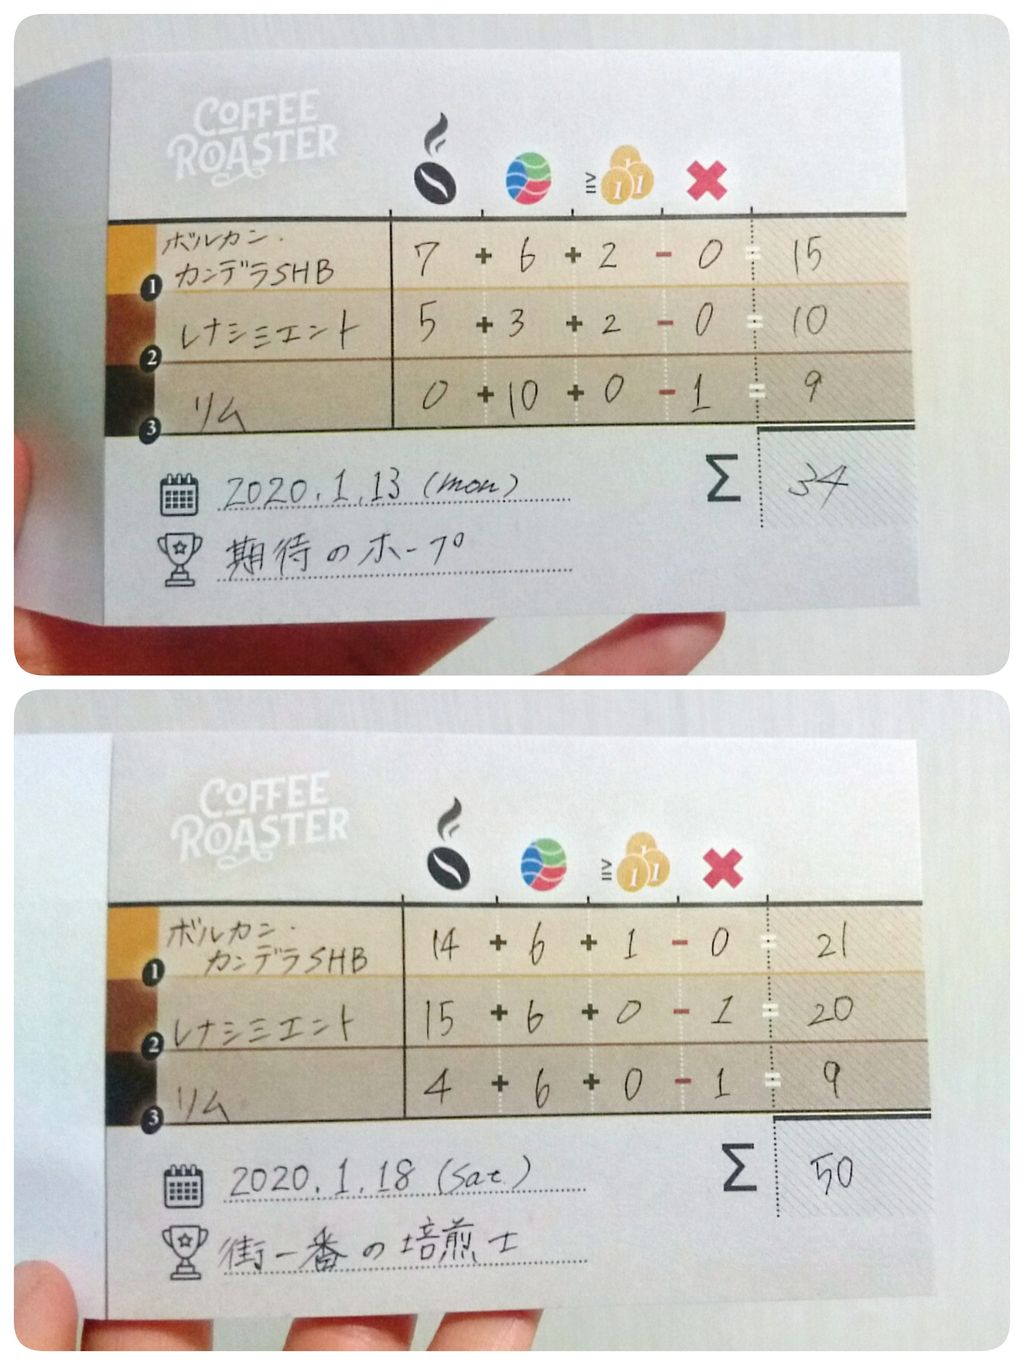 COFFEE
ROASTER
≧ 1 1 1
ボルカン・
カンデラSHB
1 7 + 6 + 2 - 0 = 15
2 レナシミエント 5 + 3 + 2 - 0 = 10
3 リム 0 + 10 + 0 - 1 = 9
2020.1.13 (mon) Σ 34
期待のホープ
COFFEE
ROASTER
≧ 1 1 1
ボルカン・
カンデラSHB
1 14 + 6 + 1 - 0 = 21
2 レナシミエント 15 + 6 + 0 - 1 = 20
3 リム 4 + 6 + 0 - 1 = 9
2020.1.18 (Sat.) Σ 50
街一番の焙煎士